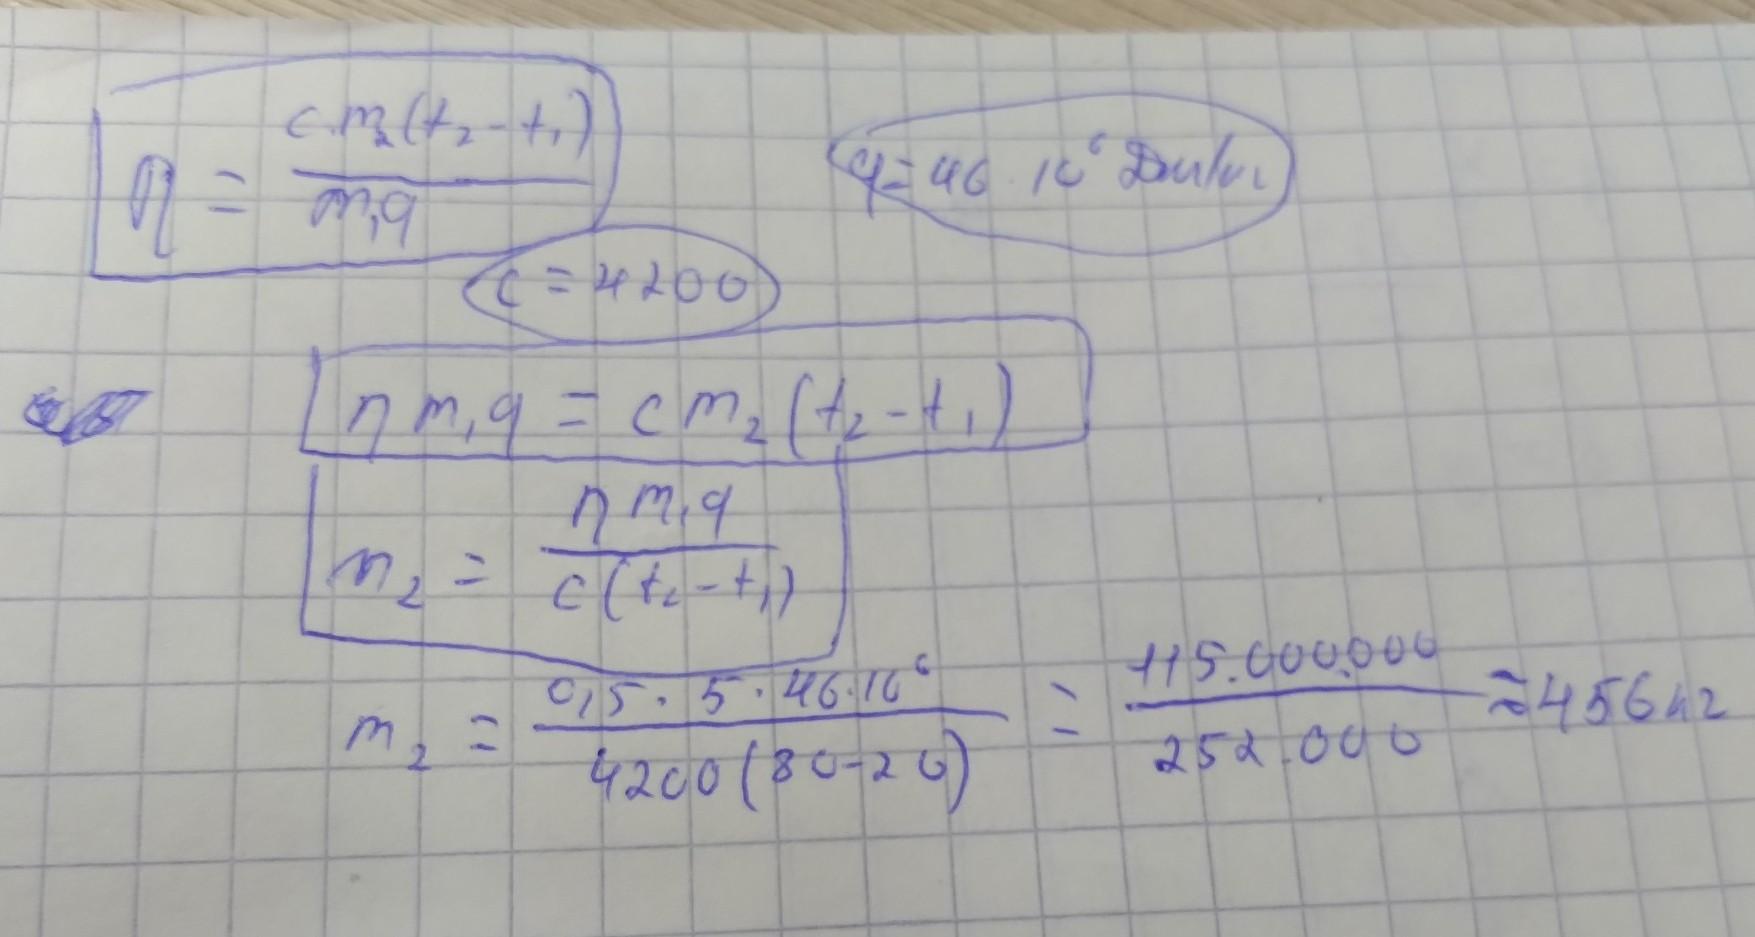 η = c·m₂(t₂-t₁) / m₁q
q = 46·10⁶ Дж/кг
c = 4200
η m₁q = c m₂ (t₂-t₁)
m₂ = η m₁q / c(t₂-t₁)
m₂ = 0,5·5·46·10⁶ / 4200(80-20) = 115.000.000 / 252.000 ≈ 456 кг